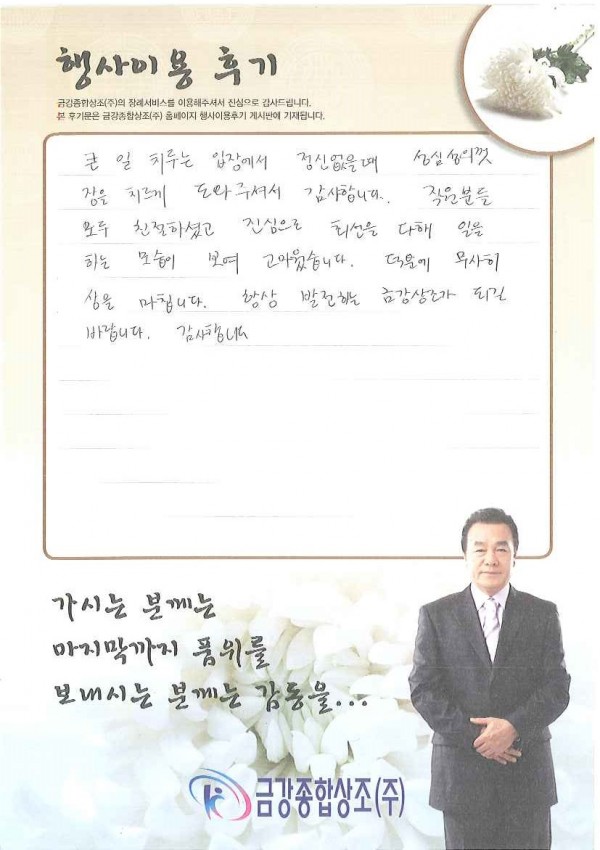 행사이용 후기
금강종합상조(주)의 장례서비스를 이용해주셔서 진심으로 감사드립니다.
본 후기문은 금강종합상조(주) 홈페이지 행사이용후기 게시판에 기재됩니다.
큰 일 치루는 입장에서 정신없을때 성심성의껏
장을 치르게 도와주셔서 감사합니다. 직원분들
모두 친절하셨고 진심으로 최선을 다해 일을
하는 모습이 보여 고마웠습니다. 덕분에 무사히
상을 마칩니다. 항상 발전하는 금강상조가 되길
바랍니다. 감사합니다
가시는 분께는
마지막까지 품위를
보내시는 분께는 감동을...
금강종합상조(주)